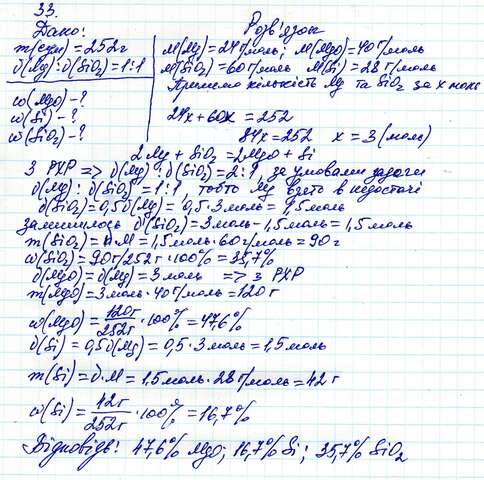 33.
Дано:
m(сум) = 252г
ν(Mg) : ν(SiO₂) = 1:1
ω(MgO) - ?
ω(Si) - ?
ω(SiO₂) - ?
Розв'язок
M(Mg) = 24 г/моль; M(MgO) = 40 г/моль
M(SiO₂) = 60 г/моль M(Si) = 28 г/моль
Приймемо кількість Mg та SiO₂ за x моль
24x + 60x = 252
84x = 252 x = 3 (моль)
2Mg + SiO₂ = 2MgO + Si
З РХР => ν(Mg) : ν(SiO₂) = 2:1, за умовами задачі
ν(Mg) : ν(SiO₂) = 1:1, тобто Mg взято в недостачі
ν(SiO₂) = 0,5ν(Mg) = 0,5 · 3 моль = 1,5 моль
залишилось ν(SiO₂) = 3 моль - 1,5 моль = 1,5 моль
m(SiO₂) = ν · M = 1,5 моль · 60 г/моль = 90 г
ω(SiO₂) = 90 г/252 г · 100% = 35,7%
ν(MgO) = ν(Mg) = 3 моль => з РХР
m(MgO) = 3 моль · 40 г/моль = 120 г
ω(MgO) = 120г/252г · 100% = 47,6%
ν(Si) = 0,5ν(Mg) = 0,5 · 3 моль = 1,5 моль
m(Si) = ν · M = 1,5 моль · 28 г/моль = 42 г
ω(Si) = 42г/252г · 100% = 16,7%
Відповідь: 47,6% MgO; 16,7% Si; 35,7% SiO₂